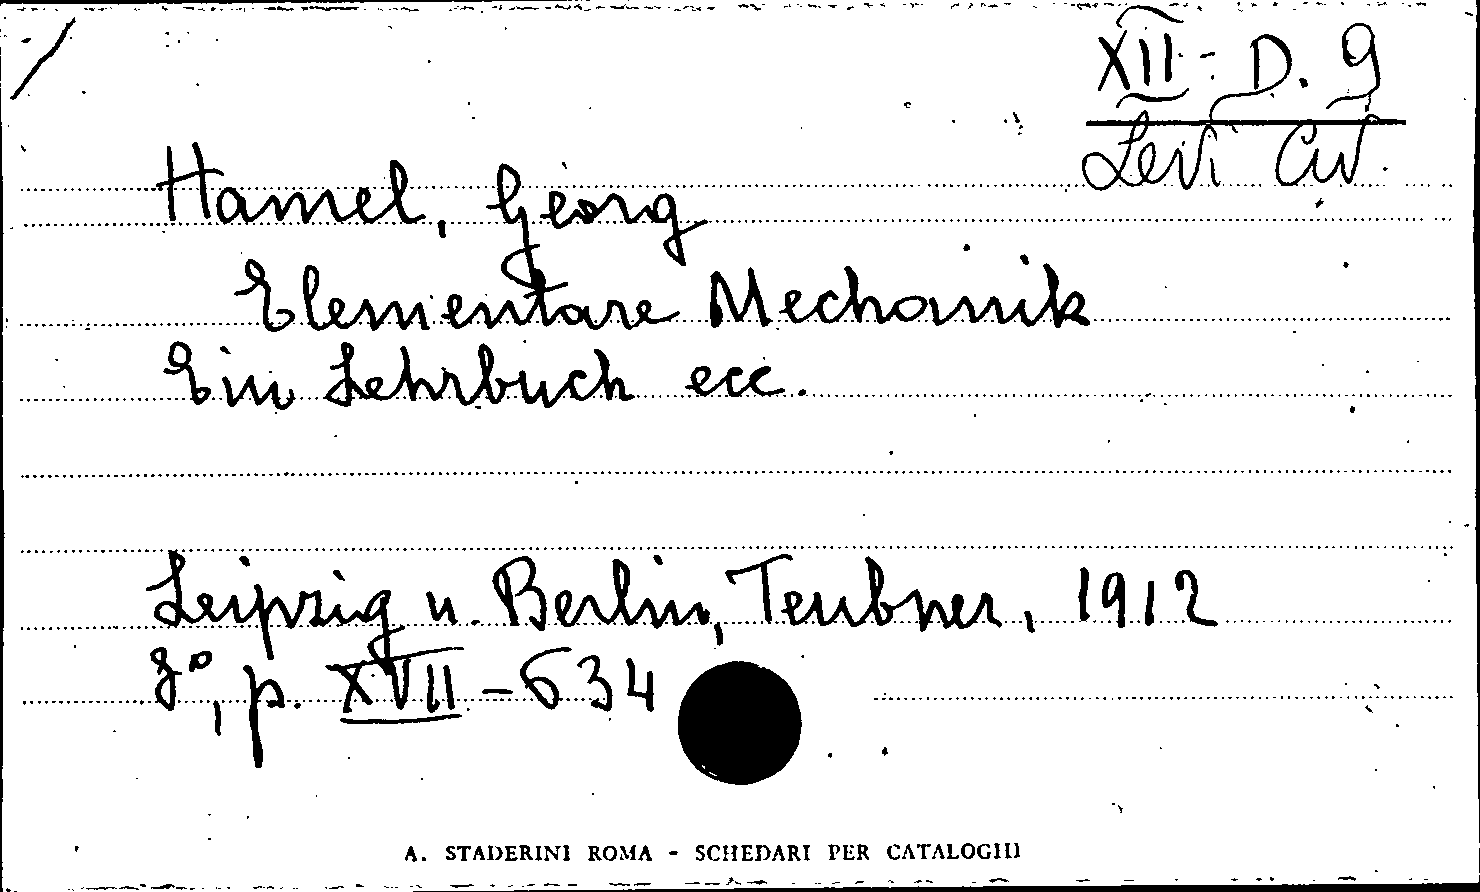 XII - D. 9
Levi Civ.
Hamel, Georg
Elementare Mechanik
Ein Lehrbuch ecc.
Leipzig u. Berlin, Teubner, 1912
8°, p. XVII - 634
A. STADERINI ROMA - SCHEDARI PER CATALOGHI